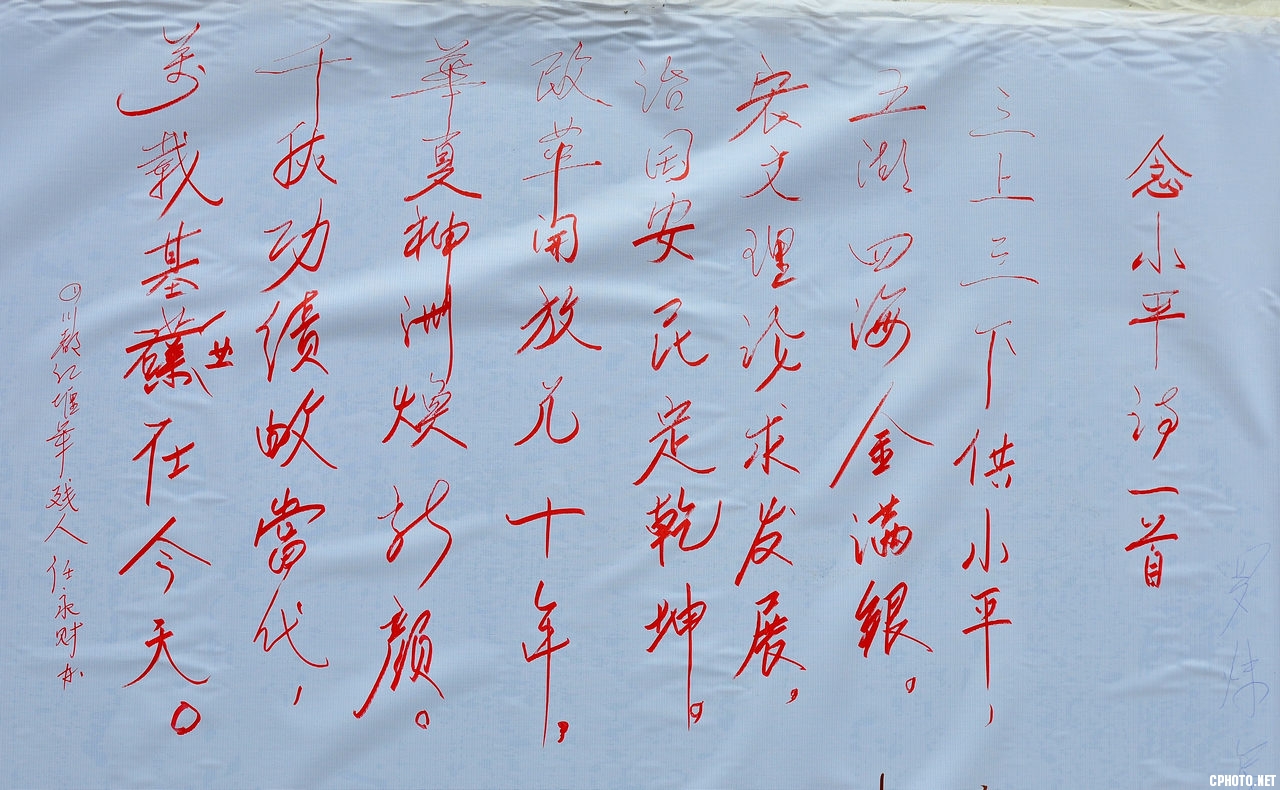 念小平诗一首
三上三下供小平,
五湖四海金满银。
宏文理论求发展,
治国安民定乾坤。
改革开放几十年,
華夏神洲焕新颜。
千秋功绩邮當代,
萬载基業在今天。
业
川都江堰 残人任永财
CPHOTO.NET